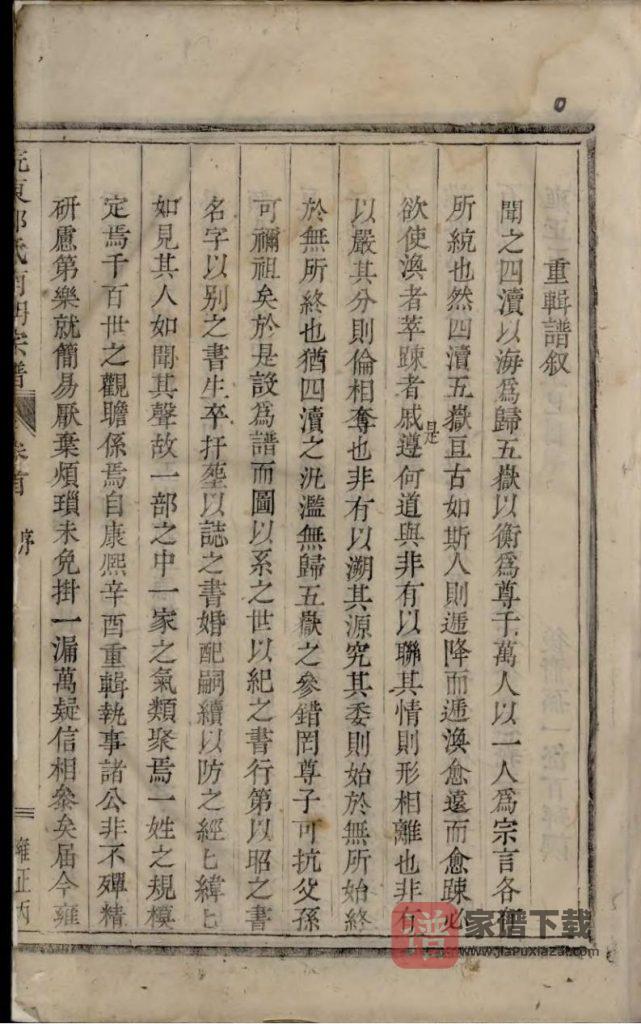 重輯譜叙
聞之四瀆以海爲歸五嶽以衡爲尊千萬人以一人爲宗言各有
所統也然四瀆五嶽亘古如斯人則遞降而遞渙愈遠而愈踈必
欲使渙者萃踈者戚遵何道與非有以聯其情則形相離也非有
是
以嚴其分則倫相奪也非有以溯其源究其委則始於無所始終
於無所終也猶四瀆之汎濫無歸五嶽之參錯罔尊子可抗父孫
可禰祖矣於是設爲譜而圖以系之世以紀之書行第以昭之書
名字以别之書生卒扞塟以誌之書婚配嗣續以防之經匕緯匕
如見其人如聞其聲故一部之中一家之氣類聚焉一姓之規模
定焉千百世之觀瞻係焉自康熈辛酉重輯執事諸公非不殫精
研慮第樂就簡易厭棄煩瑣未免掛一漏萬疑信相叅矣届今雍
東 氏 宗譜
卷首
序
雍正丙
0
譜
家谱下载
www.jiapuxiazai.com